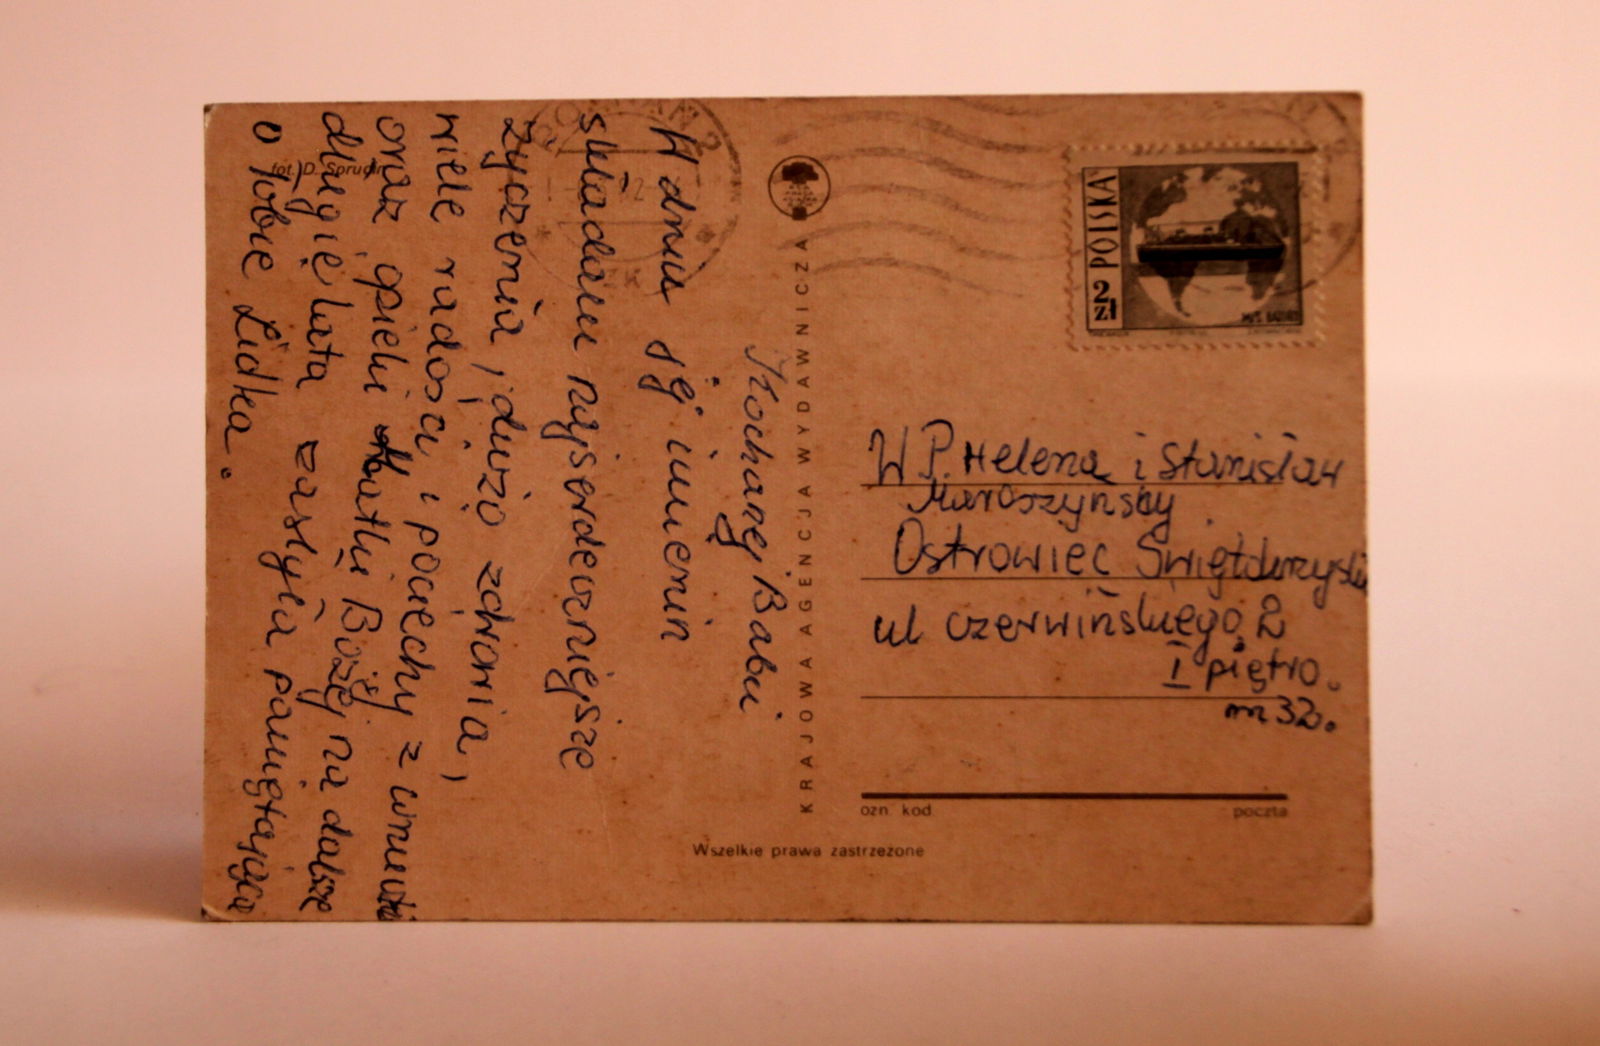 Kochanej Babci
W dniu jej imienin
składam najserdeczniejsze
życzenia, dużo zdrowia,
wiele radości i pociechy z wnuczki
oraz opieki Matki Bożej na dalsze
długie lata zasyła pamiętająca
o Tobie Lidka.
fot. D.
KRAJOWA AGENCJA WYDAWNICZA
POLSKA
2 zł
W P. Helena i Stanisław
Maroszyńscy
Ostrowiec Świętokrzyski
ul Czerwińskiego 2
I piętro.
m 32.
ozn. kod
poczta
Wszelkie prawa zastrzeżone